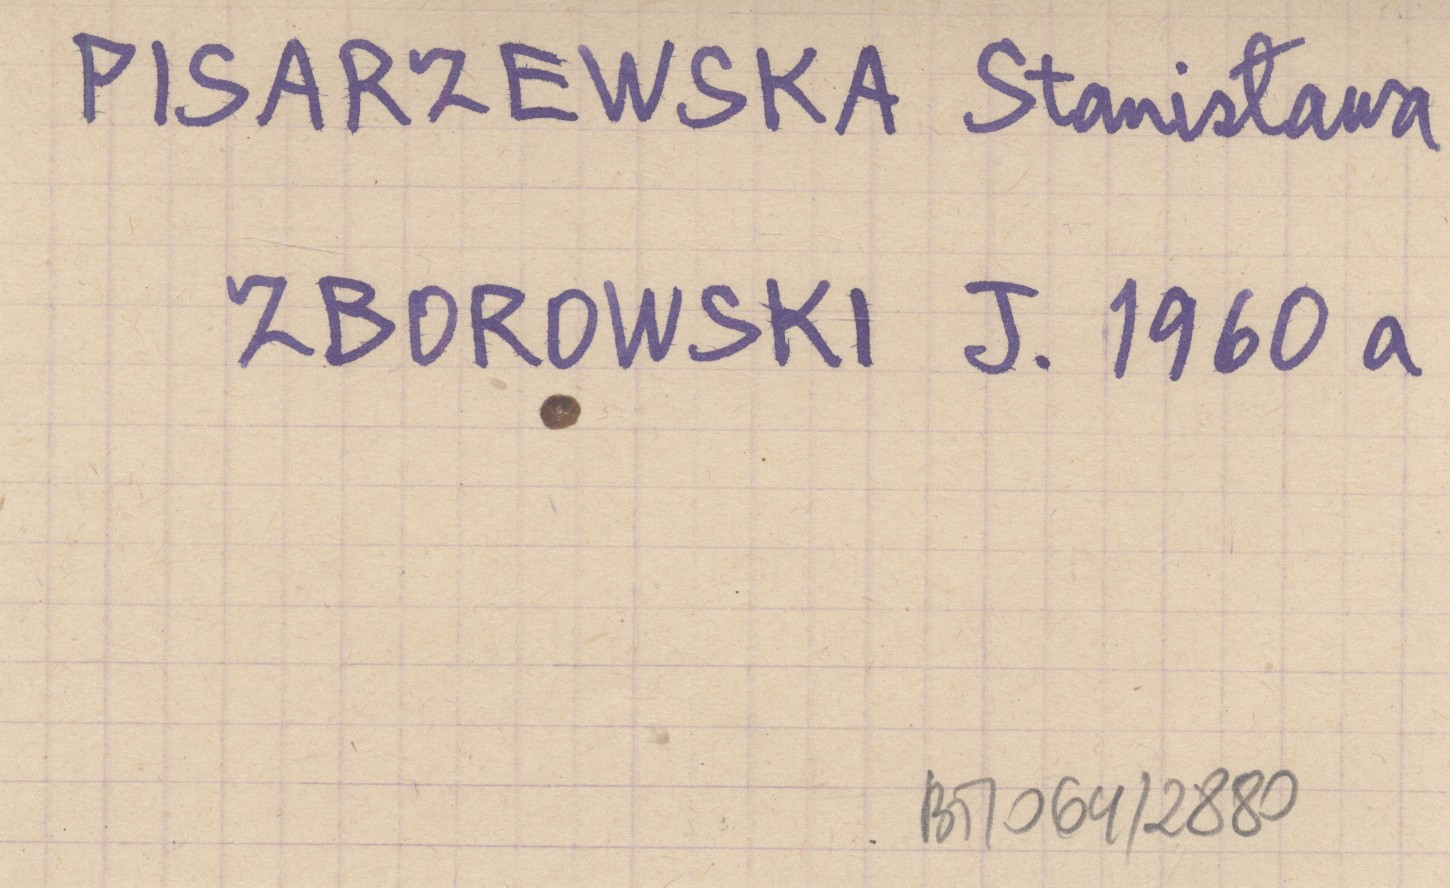 PISARZEWSKA Stanisława
ZBOROWSKI J. 1960 a
064/2880